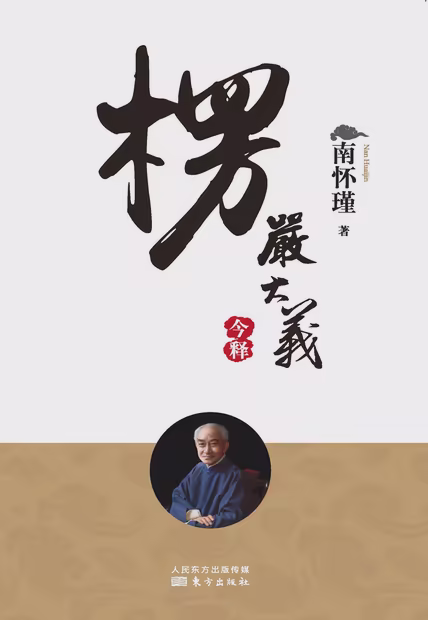 楞
嚴
大
義
今
释
南怀瑾
Nan Huaijin
著
人民东方出版传媒
東方出版社